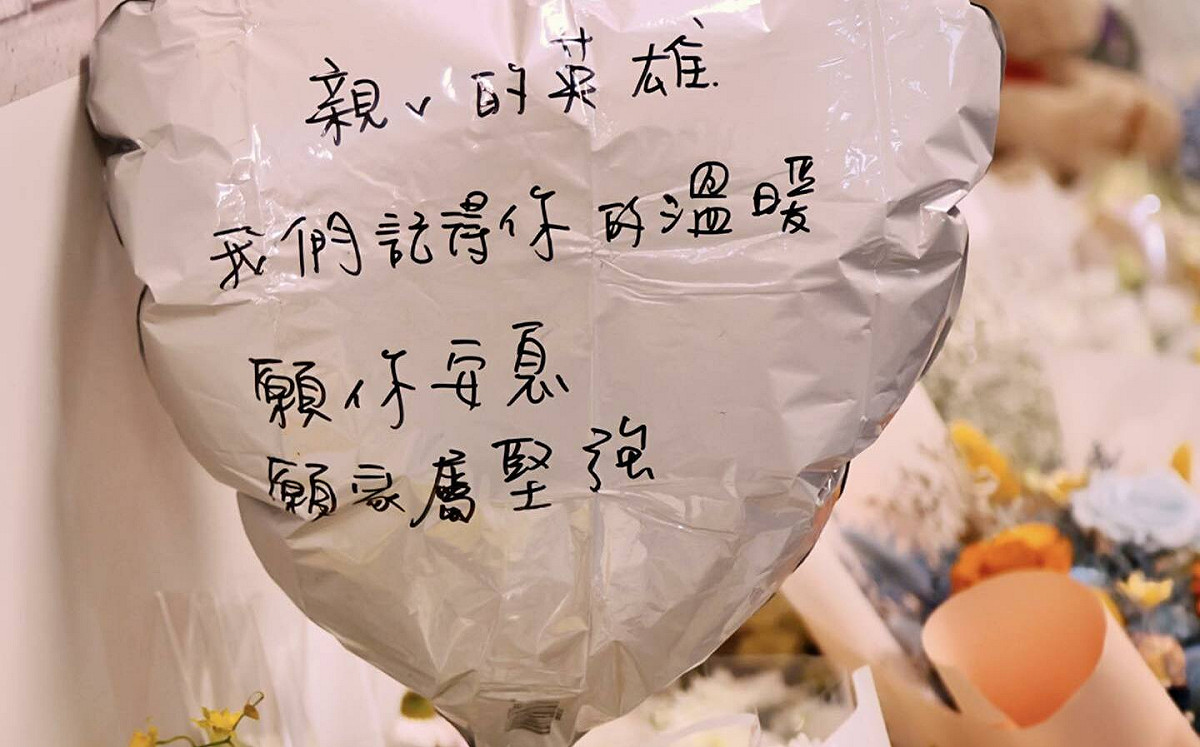 親、的英雄
我們記得你的溫暖
願你安息
願家屬堅強